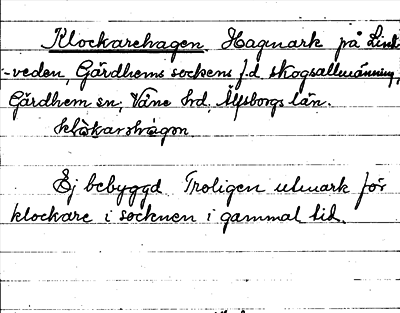 Klockarehagen. Hagmark på Lind-
-veden, Gärdhems sockens f.d. skogsallmänning,
Gärdhem sn, Väne hd, Älfsborgs län.
klåkarəhagən
Ej bebyggd. Troligen utmark för
klockare i socknen i gammal tid.